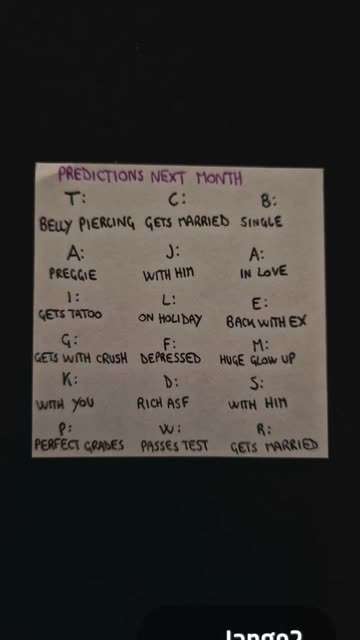 PREDICTIONS NEXT MONTH
T: C: B:
BELLY PIERCING GETS MARRIED SINGLE
A: J: A:
PREGGIE WITH HIM IN LOVE
I: L: E:
GETS TATOO ON HOLIDAY BACK WITH EX
G: F: M:
GETS WITH CRUSH DEPRESSED HUGE GLOW UP
K: D: S:
WITH YOU RICH ASF WITH HIM
P: W: R:
PERFECT GRADES PASSES TEST GETS MARRIED